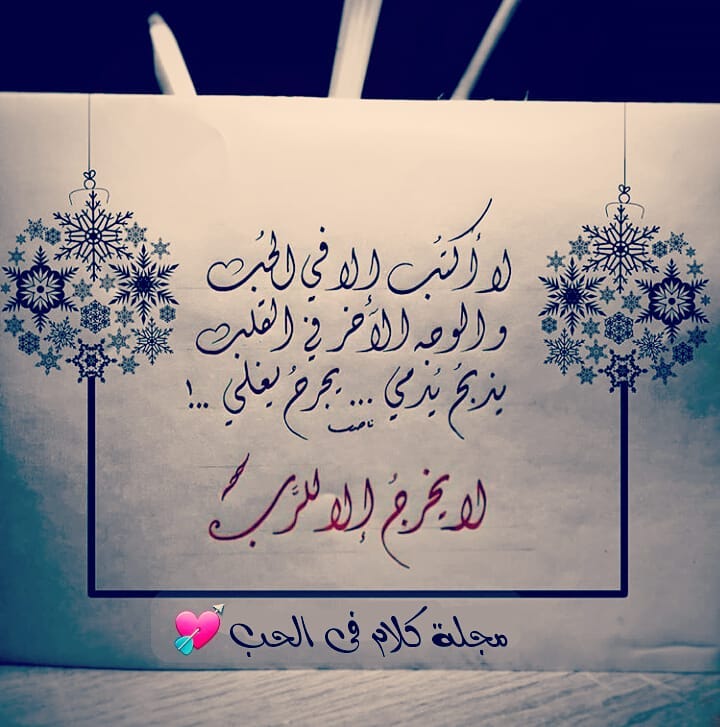 لا أكتُب إلا في الحُب
والوجه الآخر في القلب
يذبحُ يُدمي ... يجرحُ يغلي ...!
لا يخرجُ إلا للرَّب
مجلة كلام فى الحب